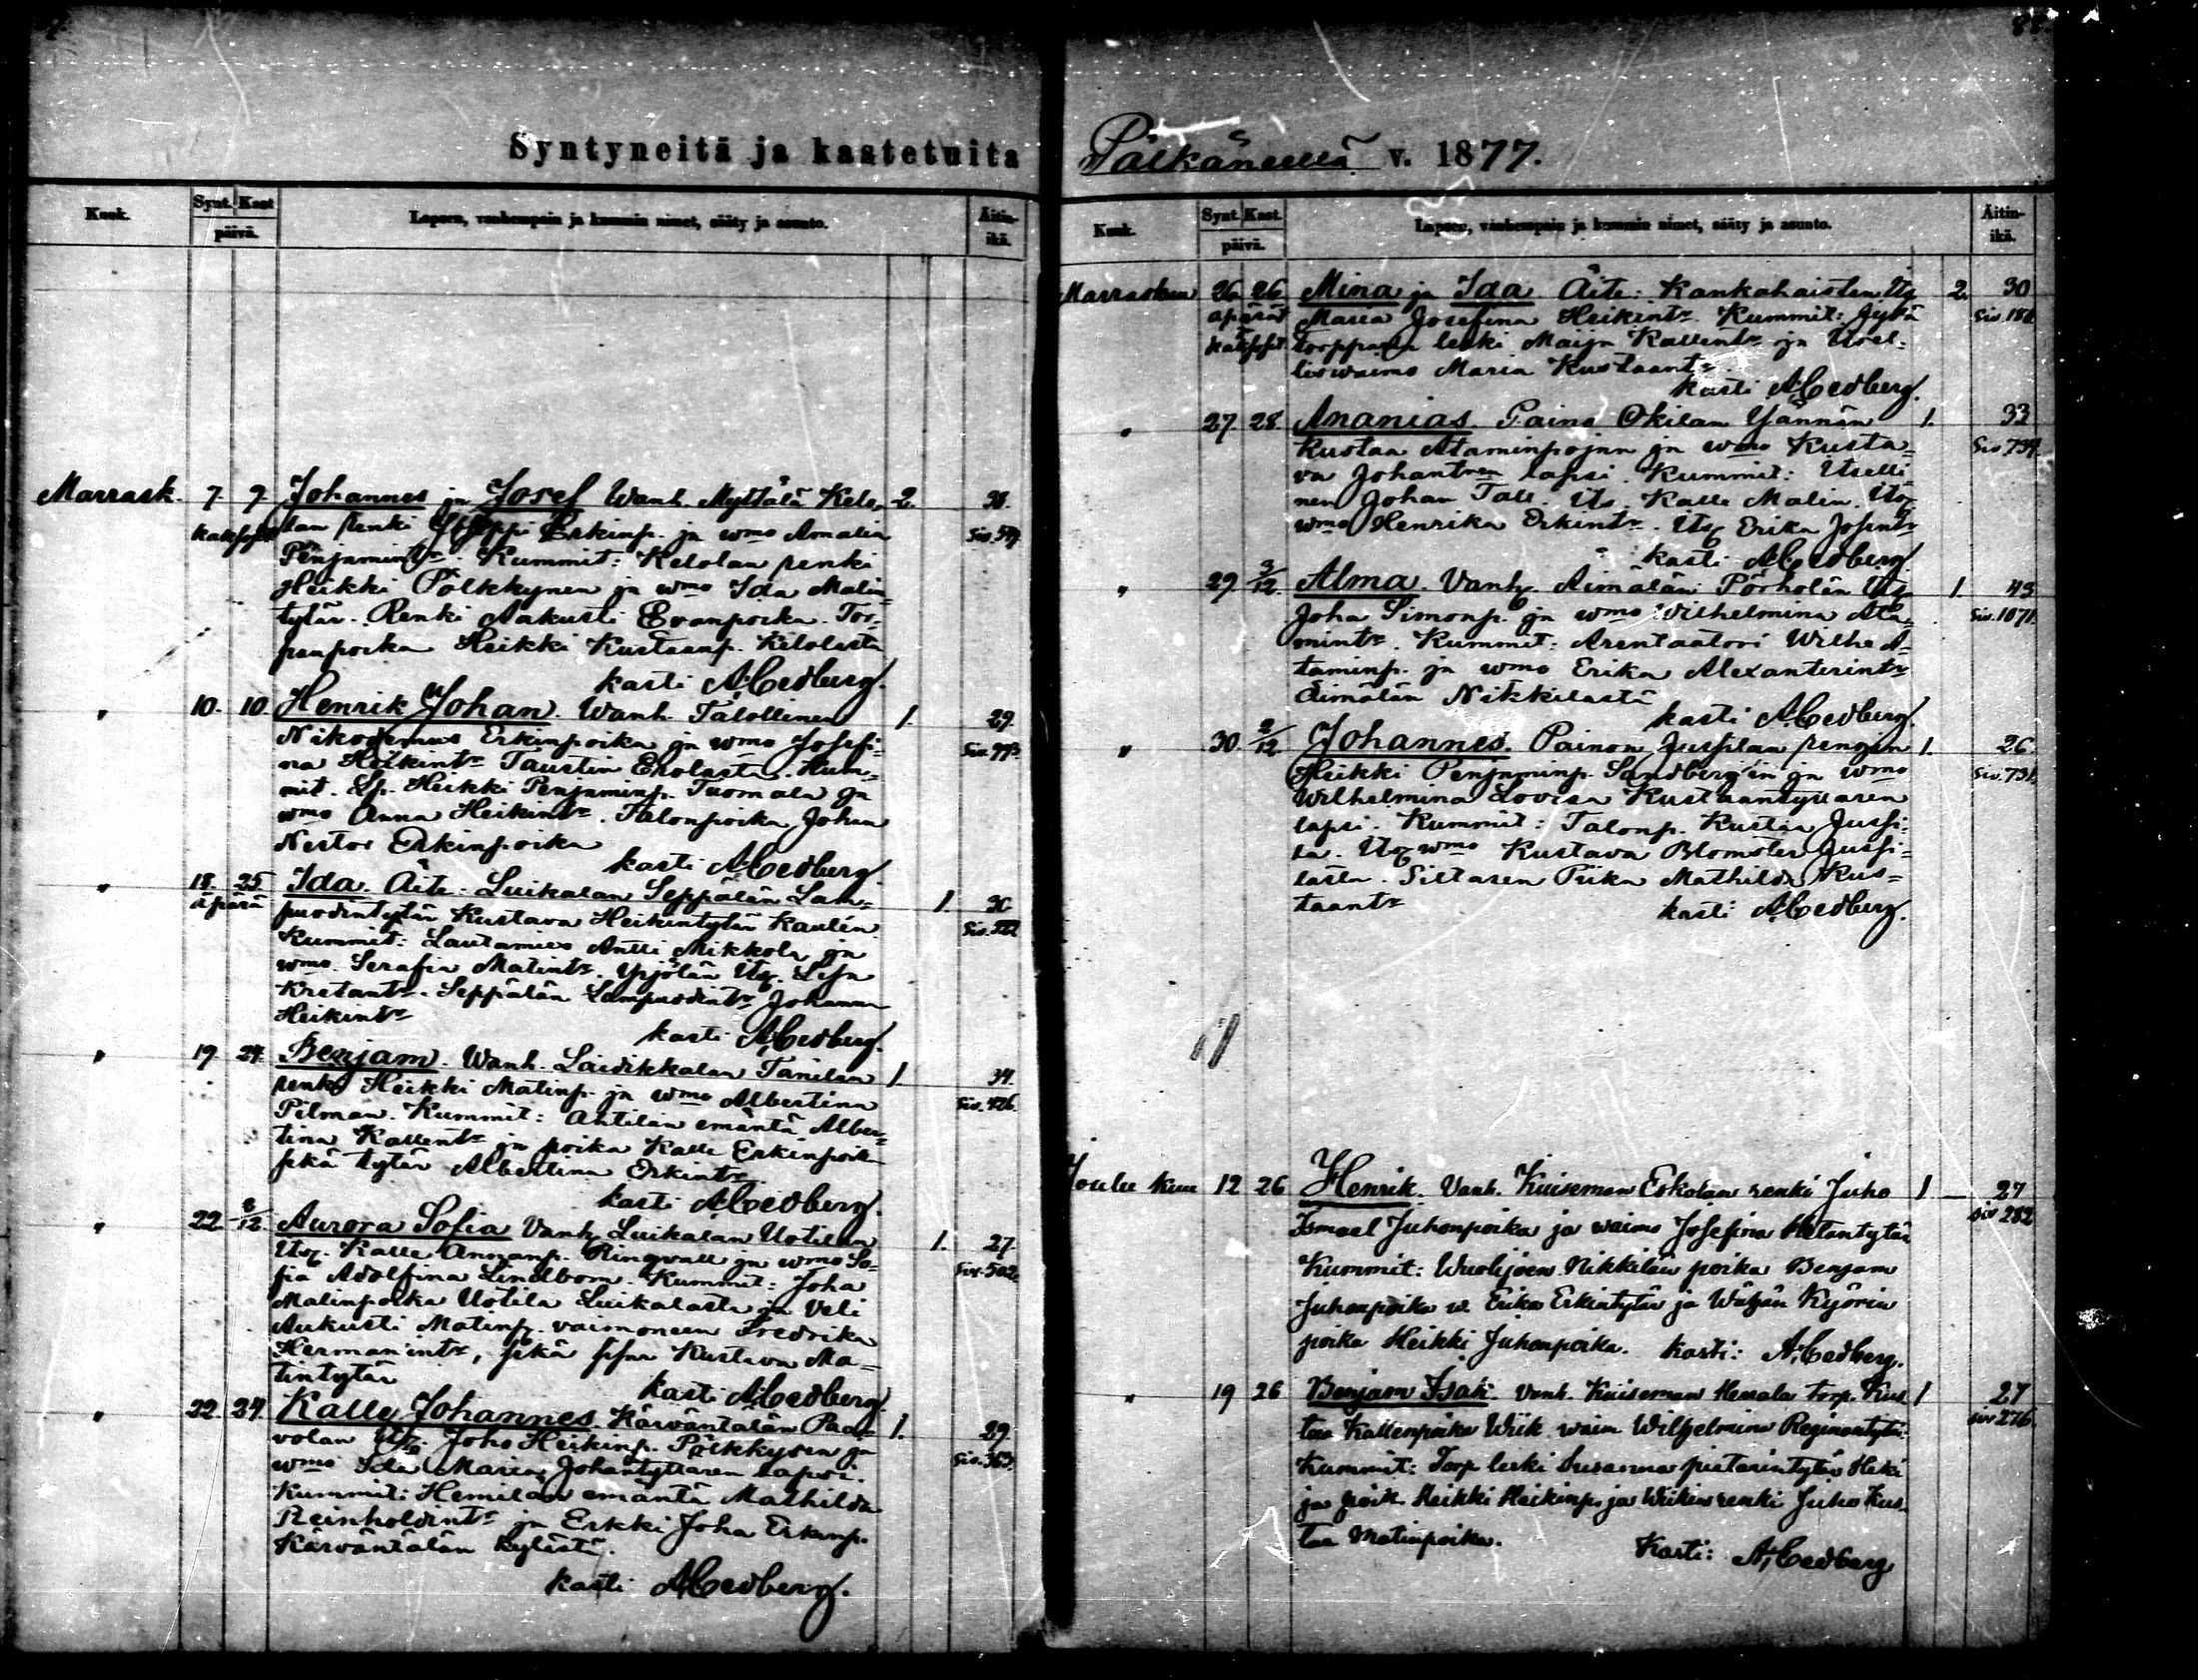 Syntyneitä ja kastetuita
Kuuk. Synt. Kast. päivä. Lapsen, vanhempain ja kummin nimet, sääty ja asunto. Äitin-ikä.
Marrask. 7 9 Johannes ja Josef Wanh. Myttälä Kelo- 2. 38.
kaksoset lan renki Erkinp. ja wmo Amalia Siv. 
Penjamint:r Kummit: Kelolan renki
Heikki Pölkkynen ja wmo Ida Matin
tytär. Renki Aukusti Evanpoika. Tor-
panpoika Heikki Kustaanp. Kelolasta
kasti A,Cedberg.
" 10. 10. Henrik Johan. Wanh. Talollinen 1. 29.
Nikodemus Erkinpoika ja wmo Josefi- Siv. 
na Heikint:r Taustin Eholasta. Kum-
mit. Lp. Heikki Penjaminp. Tuomala ja
wmo Anna Heikint:r. Talonpoika Johan
Nestor Erkinpoika
kasti A,Cedberg.
" 18. 25. Ida. Äite. Luikalan Seppälän Lam- 1. 30
äpärä puodintytär Kustava Heikintytär Siv. 522
Kummit: Lautamies Antti Mikkola ja
wmo. Serafia Matint:r. Yrjölän Its. Lisa
Seppälän Lampuodint:r Johanna
Heikint:r
kasti A,Cedberg.
" 19 24. Benjam. Wanh. Laidikkalan Tanilan 1. 34.
renki Heikki Matinp. ja wmo Albertina Siv. 426.
Pilman. Kummit: Anttilan emäntä Alber-
tina Kallent:r ja poika Kalle Erkinpoika
sekä tytär Albertina Erkint:r.
kasti A,Cedberg.
" 22. 2/12 Aurora Sofia Vanh. Luikalan Uotilan 1. 27.
Its. Kalle Annanp. Ringvall ja wmo So- Siv. 502.
fia Adolfina Lindbom. Kummit: Joha
Matinpoika Uotila Luikalasta ja Veli
Aukusti Matinp. vaimoneen Fredrika
Hermanint:r, sekä Kustava Ma-
tintytär
kasti A,Cedberg
" 22. 24. Kalle Johannes. Kärväntälän Paa- 1. 29.
volan Its. Joho Heikinp. Pölkkysen ja Siv. 363.
wmo Ida Maria Johantyttaren lapsi.
Kummit: Hemilan emäntä Mathilda
Reinholdint:r ja Erkki Joha Erkinp.
Kärväntälän kylästä.
kasti A,Cedberg.
Pälkäneellä v. 1877.
Kuuk. Synt. Kast. päivä. Lapsen, vanhempain ja kummin nimet, sääty ja asunto. Äitin-ikä.
Marraskuu 26 26. Mina ja Ida. Äite: Kankahaisten Its 2. 30
äpärät Maria Josefina Heikint:r. Kummit: Siv. 
kaksoset torpparin leski Maija Kallent:r ja Itsel-
lisvaimo Maria Kustaant:r.
kasti A,Cedberg.
" 27. 28. Ananias. Paino Okilan Yännän 1. 33
Kustaa Ataminpojan ja wmo Kusta- Siv 734.
va Johant:ren lapsi. Kummit: Itselli-
nen Johan Tall. Its. Kalle Malin. Its.
wmo Henrika Erkint:r. Its. Erika Josent:r
kasti A,Cedberg.
" 29. 2/12. Alma. Vanh. Äimälän Pörhölän Its. 1. 43
Joha Simonp. ja wmo Wilhelmina Ata- Siv. 1071.
mint:r. Kummit: Arentaatori Wilhe A-
taminp. ja wmo Erika Alexanterint:r
Äimälän Nikkilästä
kasti A,Cedberg.
" 30. 2/12 Johannes. Painon Jussilan rengin 1. 26.
Heikki Penjaminp. Sandbergin ja wmo Siv. 731.
Wilhelmina Lovisa Kustaantyttären
lapsi. Kummit: Talonp. Kustaa Jussi-
la. Its. wmo Kustava Blomster Jussi-
lasta. Siltasen Piika Mathilda Kus-
taant:r kasti A,Cedberg.
Joulu kuu 12 26 Henrik. Vanh. Kuiseman Eskolan renki Juho 1 – 27
Ismael Juhonpoika ja waimo Josefina siv 282
Kummit: Wuolijoen Nikkilän poika Benjam
Juhonpoika w. Erika Erkintytär ja
poika Heikki Juhonpoika. kasti: A,Cedberg.
" 19 26 Benjam Isak. Vanh. Kuiseman torp. Kus 1 27
taa Kallenpoika Wiik waim Wilhelmina siv 276.
Kummit: Torp leski Susanna pietarintytär
ja poik. Heikki Heikinp. ja renki Juho Kus.
taa Matinpoika. Kasti: A,Cedberg